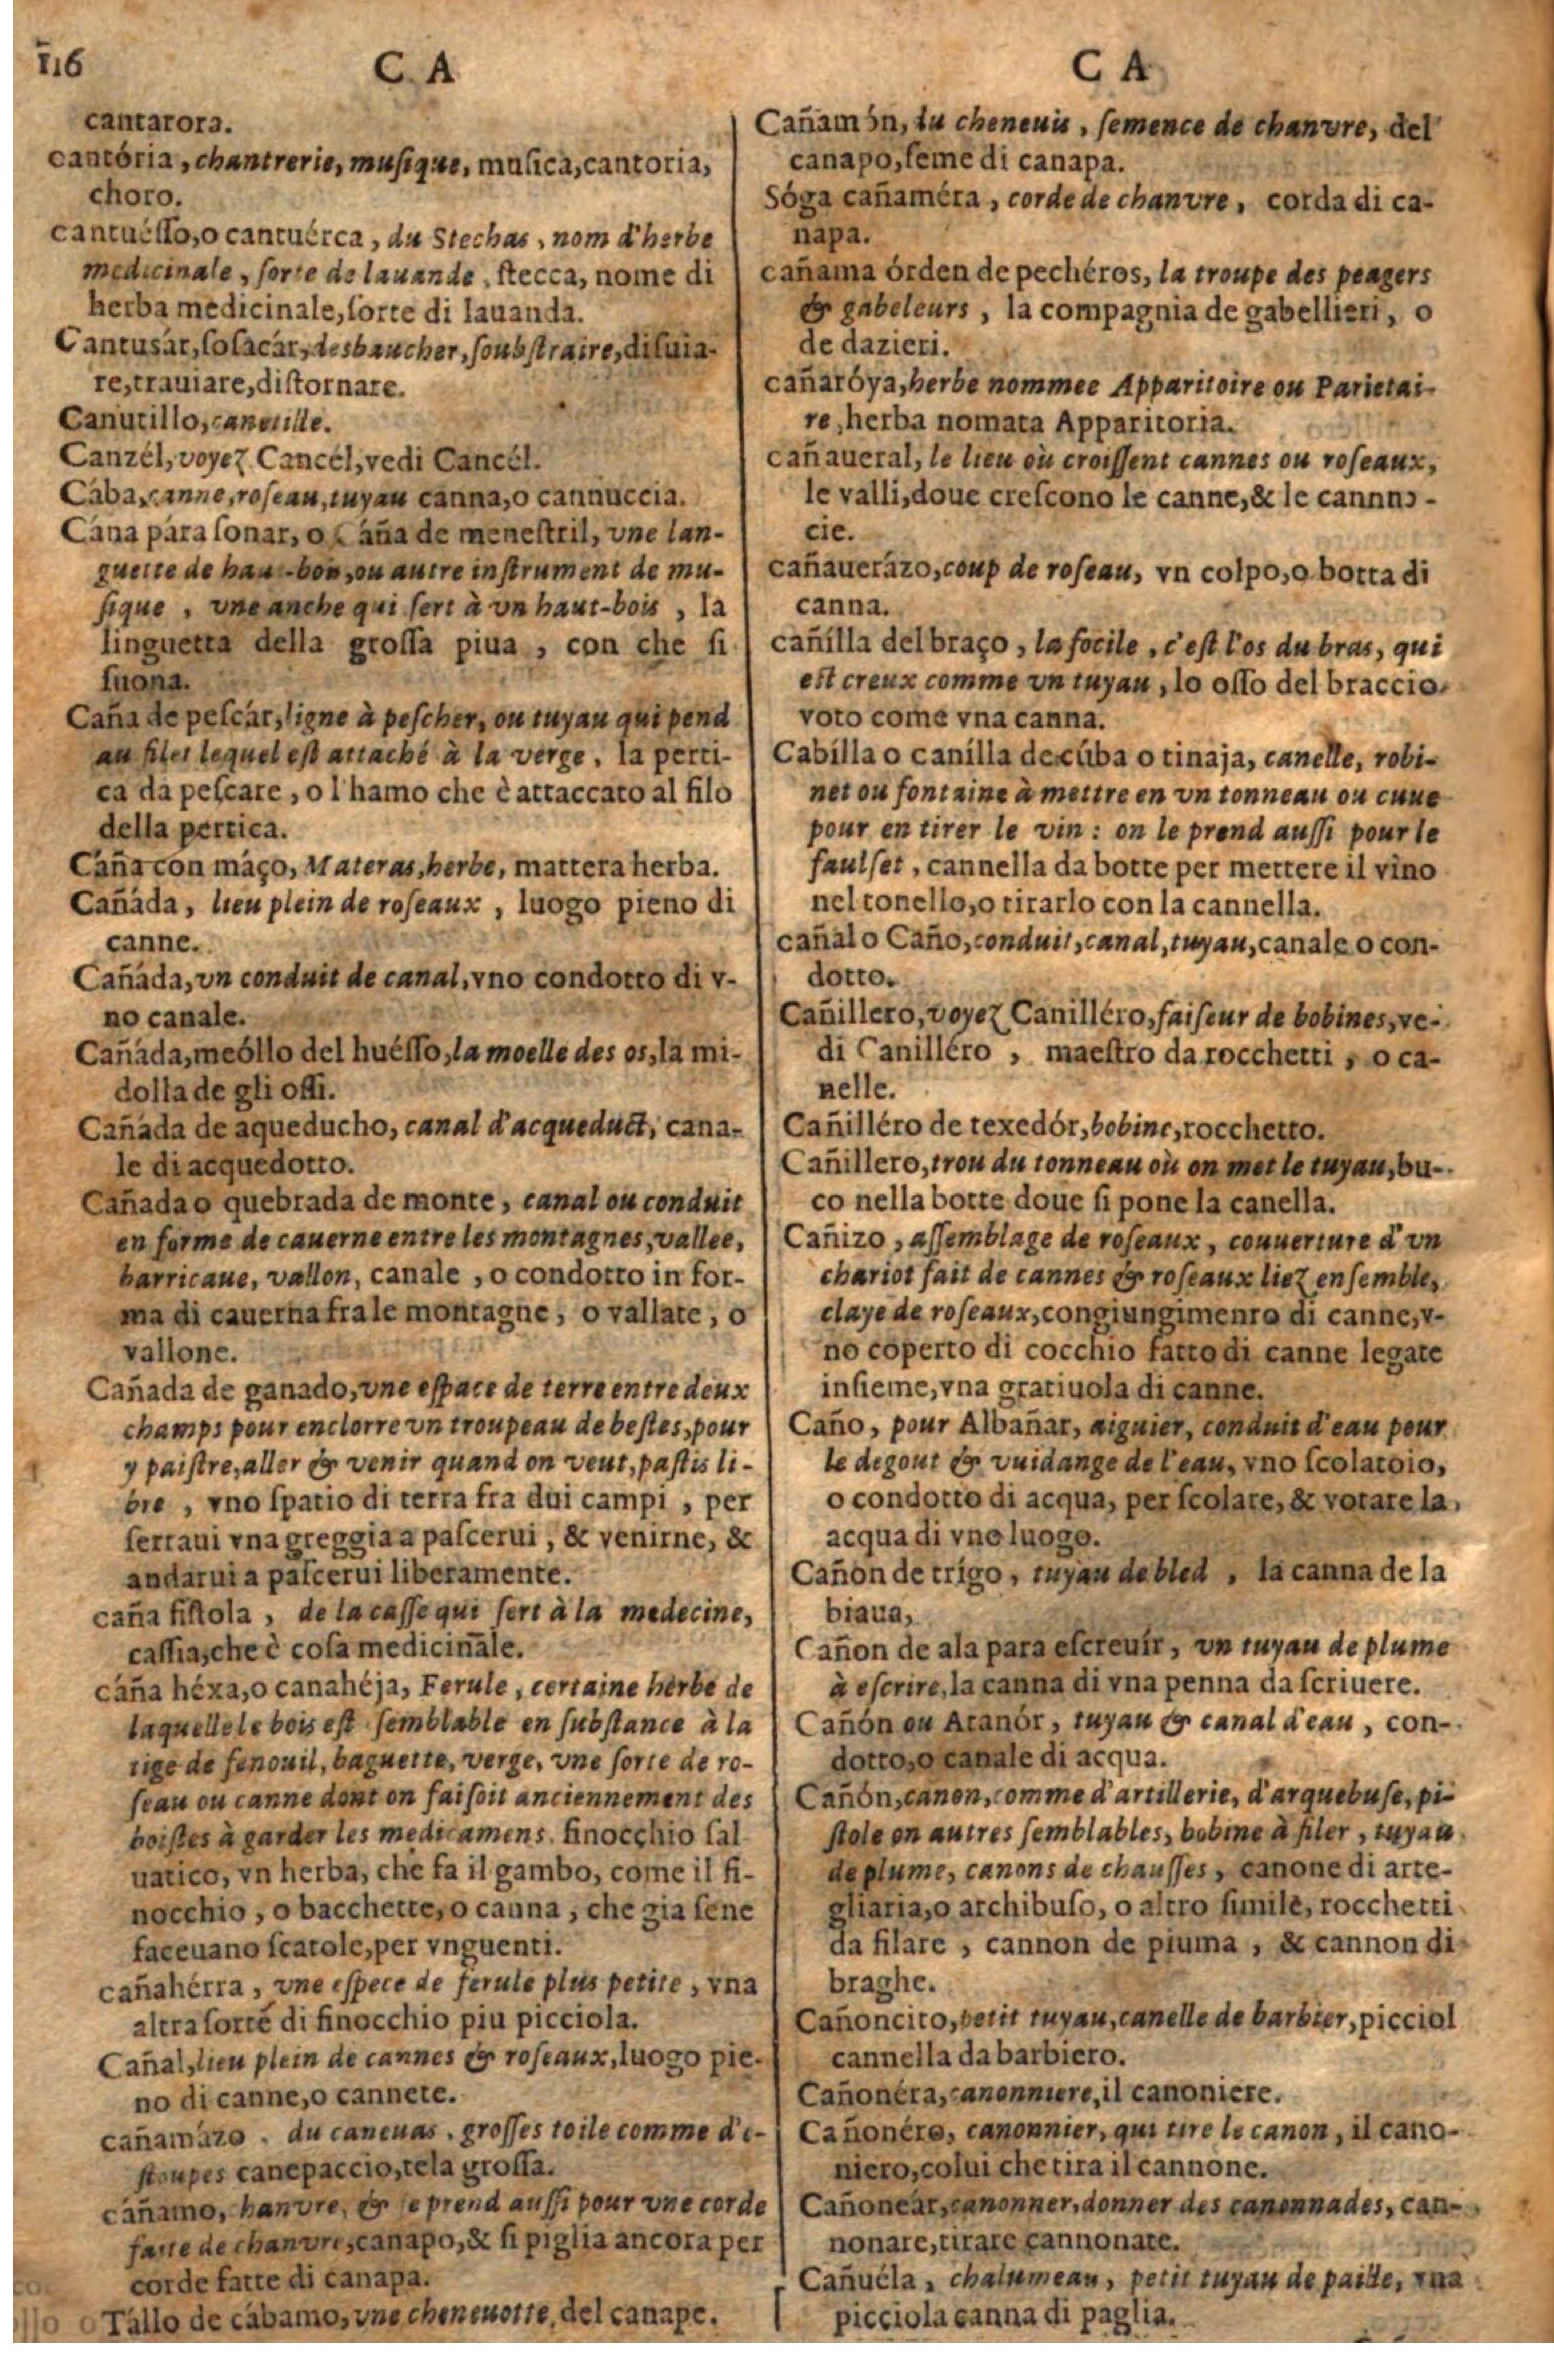 116
C A
cantarora.
cantória, chantrerie, musique, musica, cantoria,
choro.
cantuésso, o cantuérca, du Stechas, nom d'herbe
medicinale, sorte de lauande, stecca, nome di
herba medicinale, sorte di lauanda.
Cantusár, sosacár, desbaucher, soubstraire, disuia-
re, trauiare, distornare.
Canutillo, canetille.
Canzél, voyez Cancél, vedi Cancél.
Cába, canne, roseau, tuyau canna, o cannuccia.
Cána pára sonar, o Cáña de menestril, vne lan-
guette de hau-bon, ou autre instrument de mu-
sique, vne anche qui sert à vn haut-bois, la
linguetta della grossa piua, con che si
suona.
Caña de pescár, ligne à pescher, ou tuyau qui pend
au filet lequel est attaché à la verge, la perti-
ca da pescare, o l'hamo che è attaccato al filo
della pertica.
Cáña con máço, Materas, herbe, mattera herba.
Cañáda, lieu plein de roseaux, luogo pieno di
canne.
Cañáda, vn conduit de canal, vno condotto di v-
no canale.
Cañáda, meóllo del huésso, la moelle des os, la mi-
dolla de gli ossi.
Cañáda de aqueducho, canal d'acqueduct, cana-
le di acquedotto.
Cañada o quebrada de monte, canal ou conduit
en forme de cauerne entre les montagnes, vallee,
barricaue, vallon, canale, o condotto in for-
ma di cauerna fra le montagne, o vallate, o
vallone.
Cañada de ganado, vne espace de terre entre deux
champs pour enclorre vn troupeau de bestes, pour
y paistre, aller & venir quand on veut, pastis li-
bre, vno spatio di terra fra dui campi, per
serraui vna greggia a pascerui, & venirne, &
andarui a pascerui liberamente.
caña fistola, de la casse qui sert à la medecine,
cassia, che è cosa medicinale.
cáña héxa, o canahéja, Ferule, certaine herbe de
laquelle le bois est semblable en substance à la
tige de fenouil, baguette, verge, vne sorte de ro-
seau ou canne dont on faisoit anciennement des
boistes à garder les medicamens. finocchio sal
uatico, vn herba, che fa il gambo, come il fi-
nocchio, o bacchette, o canna, che gia sene
faceuano scatole, per vnguenti.
cañahérra, vne espece de ferule plus petite, vna
altra sorte di finocchio piu picciola.
Cañal, lieu plein de cannes & roseaux, luogo pie-
no di canne, o cannete.
cañamázo, du caneuas, grosses toile comme d'e-
stoupes canepaccio, tela grossa.
cáñamo, hanvre, & se prend aussi pour vne corde
faite de chanvre, canapo, & si piglia ancora per
corde fatte di canapa.
Tállo de cábamo, vne cheneuotte, del canape.
C A
Cañamón, du cheneuis, semence de chanvre, del
canapo, seme di canapa.
Sóga cañaméra, corde de chanvre, corda di ca-
napa.
cañama órden de pechéros, la troupe des peagers
& gabeleurs, la compagnia de gabellieri, o
de dazieri.
cañaróya, herbe nommee Apparitoire ou Parietai-
re, herba nomata Apparitoria.
cañaueral, le lieu où croissent cannes ou roseaux,
le valli, doue crescono le canne, & le cannno-
cie.
cañauerázo, coup de roseau, vn colpo, o botta di
canna.
cañílla del braço, la focile, c'est l'os du bras, qui
est creux comme vn tuyau, lo osso del braccio
voto come vna canna.
Cabílla o canílla de cúba o tinaja, canelle, robi-
net ou fontaine à mettre en vn tonneau ou cuue
pour en tirer le vin: on le prend aussi pour le
faulset, cannella da botte per mettere il vino
nel tonello, o tirarlo con la cannella.
cañal o Caño, conduit, canal, tuyau, canale o con-
dotto.
Cañillero, voyez Canilléro, faiseur de bobines, ve-
di Canilléro, maestro da rocchetti, o ca-
nelle.
Cañilléro de texedór, bobine, rocchetto.
Cañillero, trou du tonneau où on met le tuyau, bu-
co nella botte doue si pone la canella.
Cañizo, assemblage de roseaux, couuerture d'vn
chariot fait de cannes & roseaux liez ensemble,
claye de roseaux, congiungimenro di canne, v-
no coperto di cocchio fatto di canne legate
insieme, vna gratiuola di canne.
Caño, pour Albañar, aiguier, conduit d'eau pour
le degout & vuidange de l'eau, vno scolatoio,
o condotto di acqua, per scolare, & votare la
acqua di vno luogo.
Cañòn de trígo, tuyau de bled, la canna de la
biaua,
Cañon de ala para escreuír, vn tuyau de plume
à escrire, la canna di vna penna da scriuere.
Cañón ou Atanór, tuyau & canal d'eau, con-
dotto, o canale di acqua.
Cañón, canon, comme d'artillerie, d'arquebuse, pi-
stole on autres semblables, bobine à filer, tuyau
de plume, canons de chausses, canone di arte-
gliaria, o archibuso, o altro simile, rocchetti
da filare, cannon de piuma, & cannon di
braghe.
Cañoncito, petit tuyau, canelle de barbier, picciol
cannella da barbiero.
Cañonéra, canonniere, il canoniere.
Cañonéro, canonnier, qui tire le canon, il cano-
niero, colui che tira il cannone.
Cañoneàr, canonner, donner des canonnades, can-
nonare, tirare cannonate.
Cañuéla, chalumeau, petit tuyau de paille, vna
picciola canna di paglia.